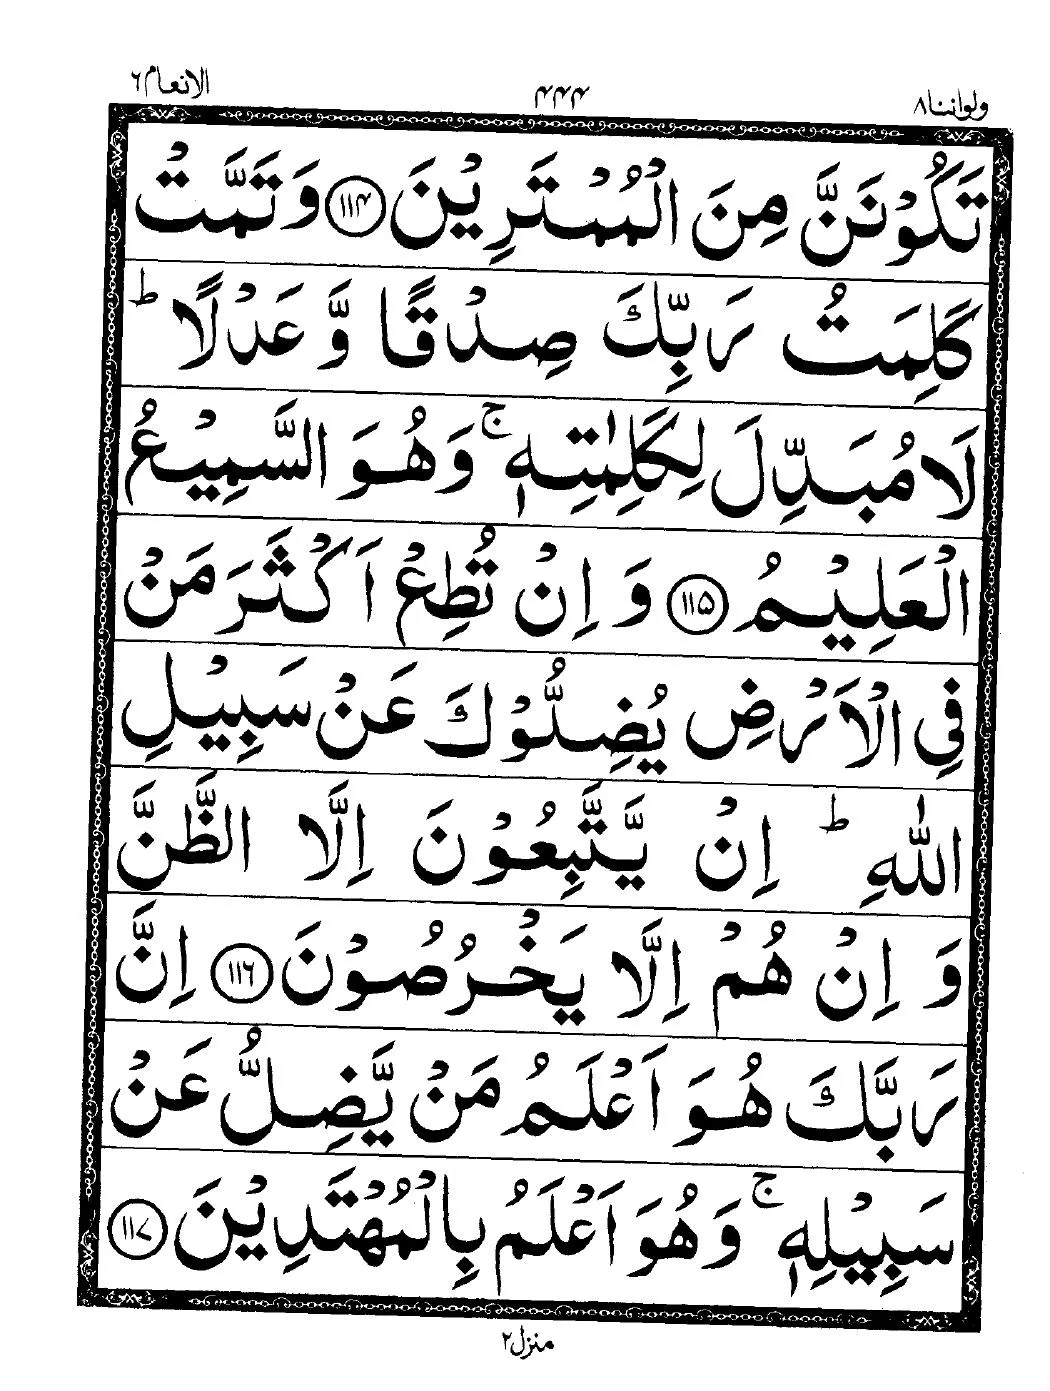 ولواننا ٨ ۴۴۴ الانعام ٦
تَكُوْنَنَّ مِنَ الْمُمْتَرِيْنَ ﴿۱۱۴﴾ وَتَمَّتْ
كَلِمَتُ رَبِّكَ صِدْقًا وَّ عَدْلًا ؕ
لَا مُبَدِّلَ لِكَلِمٰتِهٖ ۚ وَهُوَ السَّمِيْعُ
الْعَلِيْمُ ﴿۱۱۵﴾ وَ اِنْ تُطِعْ اَكْثَرَ مَنْ
فِي الْاَرْضِ يُضِلُّوْكَ عَنْ سَبِيْلِ
اللّٰهِ ؕ اِنْ يَّتَّبِعُوْنَ اِلَّا الظَّنَّ
وَ اِنْ هُمْ اِلَّا يَخْرُصُوْنَ ﴿۱۱۶﴾ اِنَّ
رَبَّكَ هُوَ اَعْلَمُ مَنْ يَّضِلُّ عَنْ
سَبِيْلِهٖ ۚ وَهُوَ اَعْلَمُ بِالْمُهْتَدِيْنَ ﴿۱۱۷﴾
منزل ٢